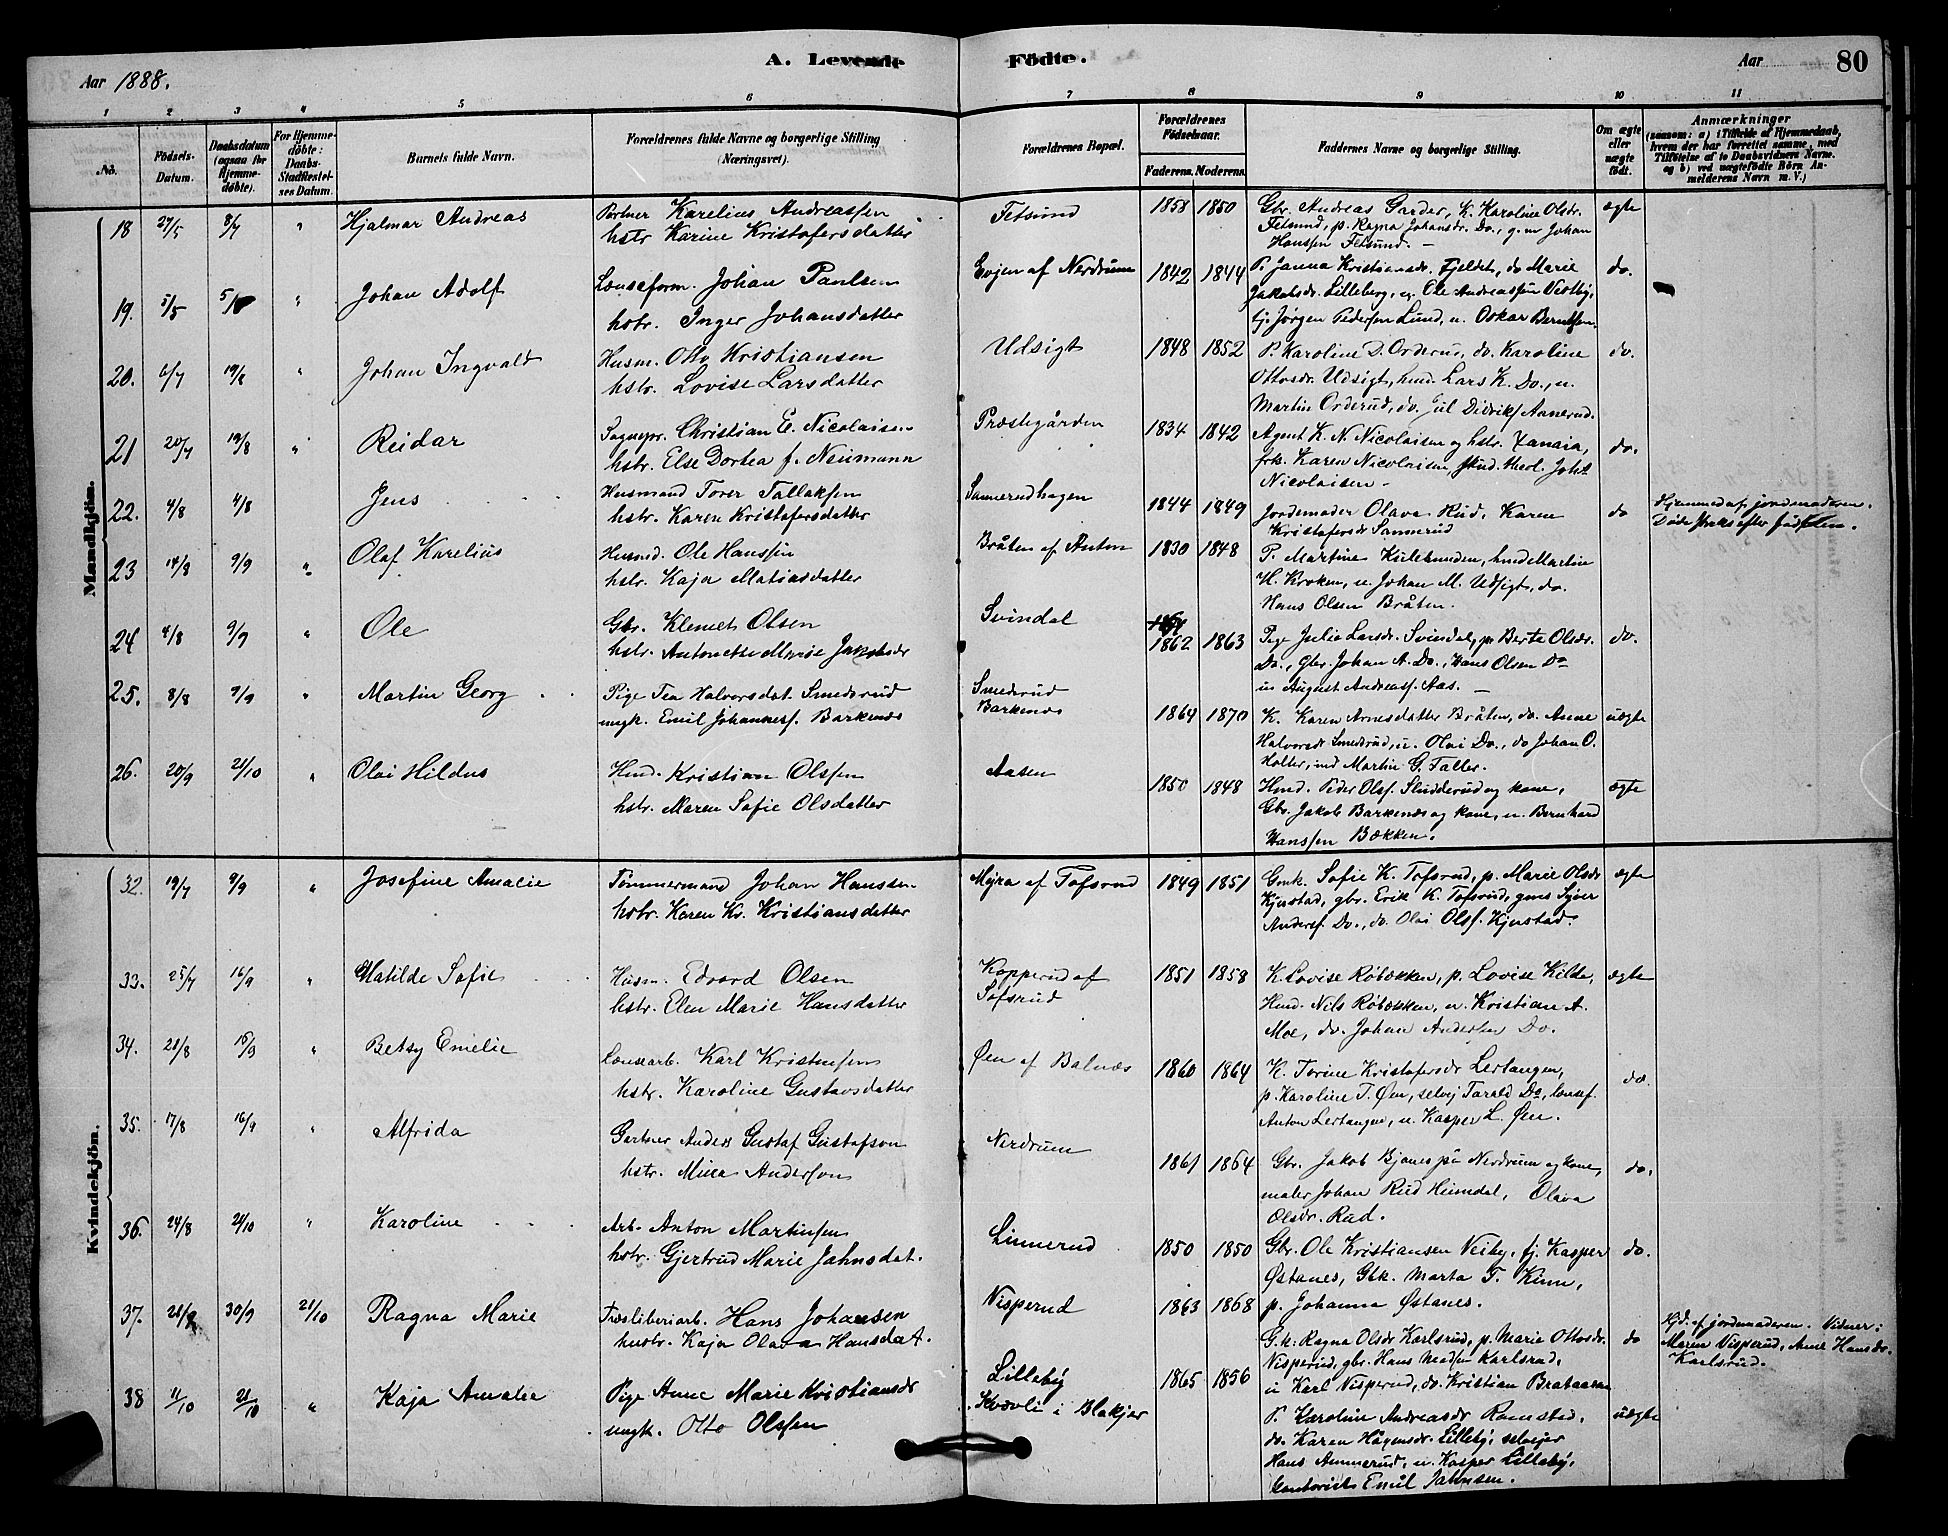 Aar 1888.
A. Levende
Födte.
Aar
80
1 2 3 4 5 6 7 8 9 10 11
No.
Födsels-Datum.
Daabsdatum (ogsaa for Hjemmedöbte).
For Hjemmedöbte: Daabs-Stadfæstelses Datum.
Barnets fulde Navn.
Forældrenes fulde Navne og borgerlige Stilling (Næringsvei).
Forældrenes Bopæl.
Forældrenes Födselsaar.
Faderens. Moderens.
Faddernes Navne og borgerlige Stilling.
Om ægte eller uægte födt.
Anmærkninger
(saasom: a) i Tilfælde af Hjemmedaab, hvem der har forrettet samme, med Tilföielse af to Daabsvidners Navne. og b) ved uægtefödte Börn Anmelderens Navn m. V.)
Mandkjön.
18 27/5 8/7 " Hjalmar Andreas
Karelius Andreassen
hstr Karine Kristofersdatter
Fetsund 1858 1850
Gbr. Andreas Garder, K. Karoline Olsdr.
Fetsund, p. Ragna Johansdr. Do., g.m Johan
Hanssen Fetsund. –
ægte
19. 5/5 " Johan Adolf
Lænseform. Johan Paulsen
hstr. Inger Johansdatter
Evjen af Nerdrum 1842 1844
P. Janna Kristiansdr. Fjeldet, do Marie
Jakobsdr. Lilleberg, u. Ole Andreassen Vestby,
tj. Jørgen Pedersen Lund, u. Oskar Berntsen.
do.
20. 6/7 19/8 " Johan Ingvald
Husm. Otto Kristiansen
hstr. Lovise Larsdatter
Udsigt 1848 1852
P. Karoline D. Orderud, do. Karoline
Ottosdr. Udsigt, hmd. Lars K. Do., u.
Martin Orderud, do. Jul Didriks. Aanerud.
do.
21 20/7 19/8 " Reidar
Sognepr. Christian E. Nicolaisen
hstr. Else Dortea f. Neumann
Præstegården 1834 1842
Agent K. N. Nicolaisen og hstr.
frk. Karen Nicolaisen Stud. theol. Johs
Nicolaisen –
do.
22. 4/8 4/8 Jens
Husmand Torer Tallaksen
hstr. Karen Kristofersdatter
Sannerudhagen 1844 1849
Jordemoder Olava Rud, Karen
Kristofersdr Sannerud
do
Hjemmed. af jordmoderen.
Døde straks efter fødselen.
23 14/8 9/9 " Olaf Karelius
Husmd. Ole Hanssen
hstr. Kaja Matiasdatter
Bråten af Anton 1830 1848
P. Martine Kulesunden, hmd Martin
H. Kroken, u. Johan M. Udsigt, do.
Hans Olsen Bråten.
24 4/8 9/9 " Ole
Gbr. Klemet Olsen
hstr. Antonette Marie Jakobsdr
Svindal
1862 1863
Pige Julie Larsdr. Svindal, p. Berte Olsdr.
Do., gbr Johan A. Do., Hans Olsen Do
u August Andreass. Aas. –
do.
25. 8/8 9/9 " Martin Georg
Pige Tea Halvorsdat. Smedsrud
ungk. Emil Johanness. Barkenæs
Smedsrud
Barkenæs 1864 1870
K. Karen Arnesdatter Bråten, do. Anne
Halvorsdr Smedsrud, u. Olai Do., do Johan O.
Holter, Martin G. Taller.
uægte
26. 20/9 21/10 " Olai Hildus
Hmd. Kristian Olssen
hstr. Maren Sofie Olsdatter
Aasen 1850 1848
Hmd. Peder Ols. Sludderud og kone,
Gbr. Jakob Barkenæs og kone, u. Bernhard
Hanssen Bækken.
ægte
Kvindekjön.
32. 19/7 9/9 " Josefine Amalie
Tömmermand Johan Hanssen
hstr. Karen Kr. Kristiansdatter
Myra af Tofsrud 1849 1851
Gmk. Sofie K. Tofsrud, p. Marie Olsdr
Kjustad, gbr. Erik K. Tofsrud, Syver
Anders. Do., do. Olai Ols. Kjustad.
ægte
33. 25/7 16/9 " Matilde Sofie
Husm. Edvard Olsen
hstr. Elen Marie Hansdatter
Kopperud af
Tofsrud 1851 1858
K. Lovise Røbækken, p. Lovise Kilde,
Hmd. Nils Røbækken, u. Kristian A.
Moe, do. Johan Andersen Do.
ægte
34. 21/8 16/9 " Betsy Emelie
Lænsearb. Karl Kristensen
hstr. Karoline Gustavsdatter
Øen af Balnæs 1860 1864
K. Torine Kristofersdr Lertangen,
p. Karoline T. Øen, selvej Tarald Do, lænsef.
Anton Lertangen, u. Kasper L. Øen.
do.
35. 17/8 16/9 " Alfrida
Gartner Anders Gustaf Gustafson
hstr. Mina Anderson
Nerdrum 1861 1864
Gbr. Jakob Bjanes på Nerdrum og kone,
maler Johan Rud Heimdal, Olava
Olsdr. Rud.
do.
36. 24/8 21/10 " Karoline
Arb. Anton Martinsen
hstr. Gjertrud Marie Jahnsdat.
Linnerud 1850 1850
Gbr. Ole Kristiansen Veiby, tj. Kasper
Østanes, Gbk. Marta T. Kinn,
p. Johanna Østanes.
do.
37. 30/9 21/10 Ragna Marie
Træsliberiarb. Hans Johansen
hustr. Kaja Olava Hansdat.
Nisperud 1863 1868
G.k. Ragna Olsdr Karlsrud, p. Marie Ottosdr.
Nisperud, gbr. Hans Madsen Karlsrud,
u Karl Nisperud, do. Kristian Brataasen
do
Hjd. af jordemoderen. Vidner:
Maren Nisperud, Anne Hansdr.
Karlsrud.
38 11/10 21/10 " Kaja Amalie
Pige Anne Marie Kristiansdr
ungk. Otto Olssen
Lilleby
Kvævli i Blakjer 1865 1856
P. Karoline Andreasdr Ramstad,
do. Karen Hågensdr. Lilleby, selvejer
Hans Ammerud, u. Kasper Lilleby,
Kontorist Emil Jahnsen.
uægte